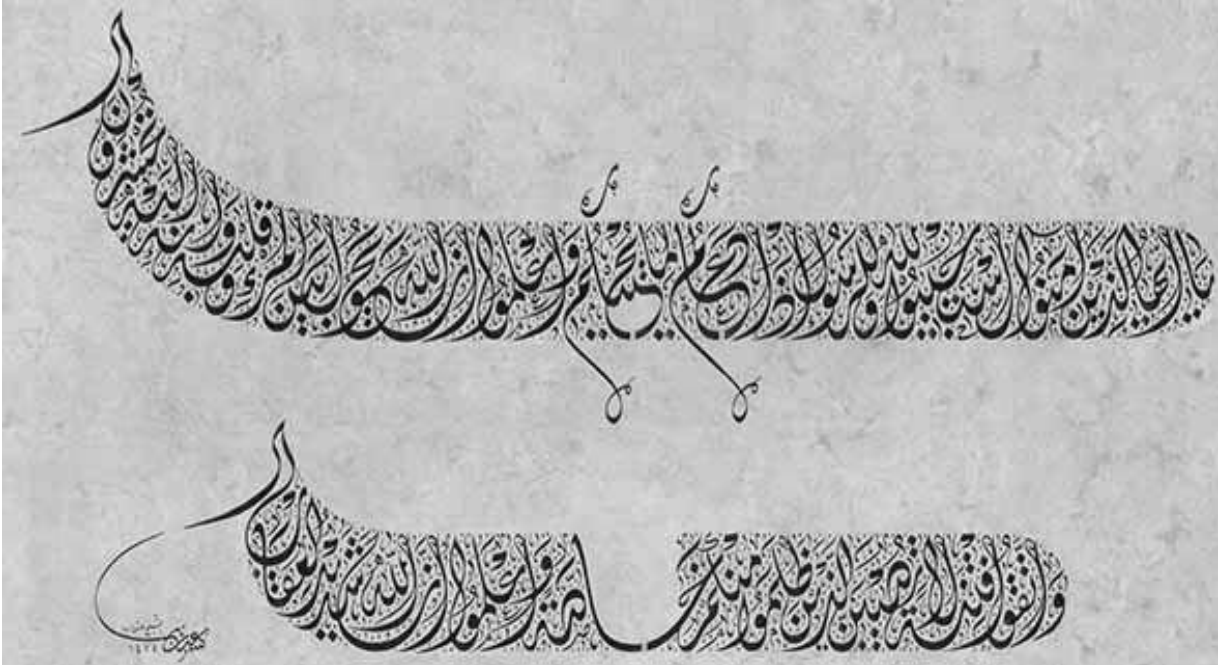 يا أيها الذين آمنوا استجيبوا لله وللرسول إذا دعاكم لما يحييكم واعلموا أن الله يحول بين المرء وقلبه وأنه إليه تحشرون
واتقوا فتنة لا تصيبن الذين ظلموا منكم خاصة واعلموا أن الله شديد العقاب